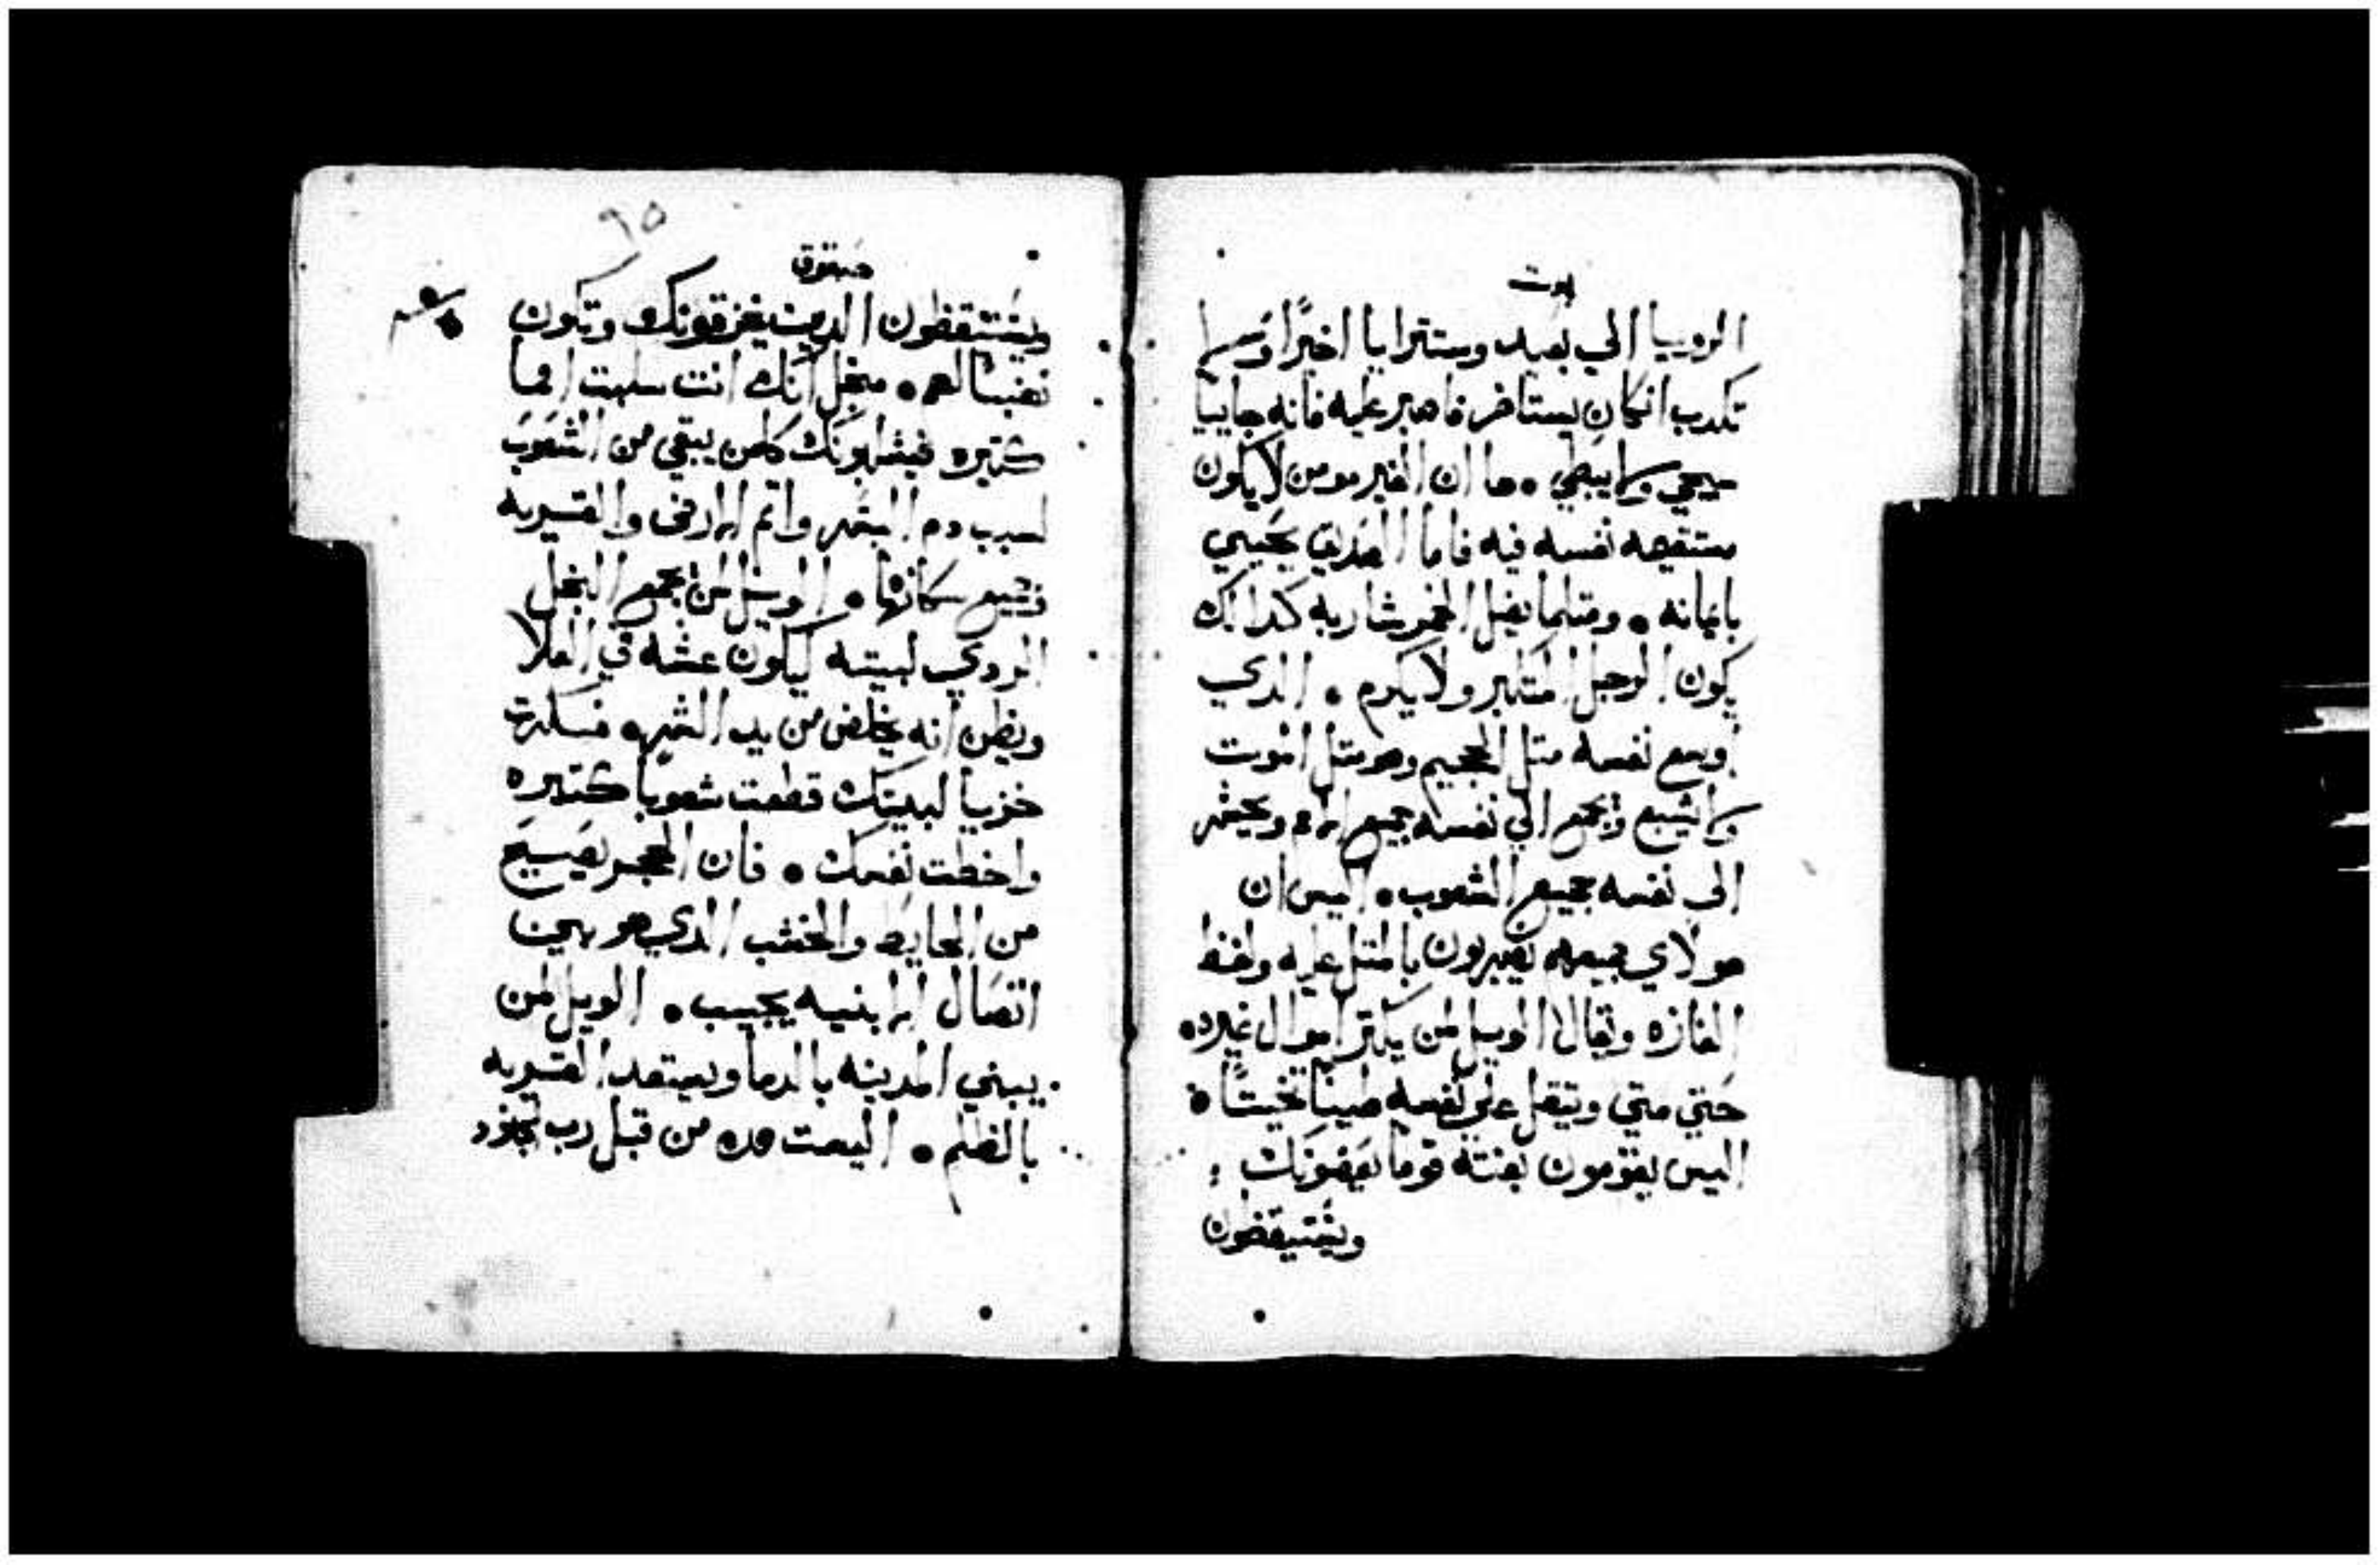 الرويا الي بعيد وستترايا اخيرًا ولا
تكدب انكان يستاخر فاصبر عليه فانه جاييا
سيجي ولا يبطي • ها ان الغير مومن لا يكون
مستقيمه نفسه فيه فاما الصديق يحيي
بايمانه • ومتلما يضل الخمر شاربه كدالك
يكون الرجل المتكبر ولا يكرم • الدي
اوسع نفسه متل الجحيم وهو متل الموت
ولا يشبع ويجمع الي نفسه جميع الامم ويحشر
الي نفسه جميع الشعوب • اليس ان
هولاي جميعهم يصيرون بالمتل عليه ولفظ
الغازه ويقال الويل لمن يكتر اموال غيره
حتي متي ويتقل علي نفسه طينا تخينًا •
اليس يقومون بغتة قوما يعضونك
ويستيقظون
حبقوق
٦٥
ويستيقظون الدين يمزقونك وتكون
نهبتا لهم • منجل انك انت سلبت امما
كتيره فيسلبونك كلمن يبقي من الشعوب
لسبب دم البشر واتم الارض والقريه
وجميع سكانها • الويل لمن يجمع البخل
الردي لبيته ليكون عشه في العلا
ويظن انه يخلص من يد الشر • فتكرت
خزيا لبيتك قطعت شعوبا كتيره
واخطت نفسك • فان الحجر يصيح
من الحايط والخشب الدي هو بين
اتصال الابنيه يجيب • الويل لمن
يبني المدينه بالدما ويستعد القريه
بالظلم • اليست هده من قبل رب الجنود